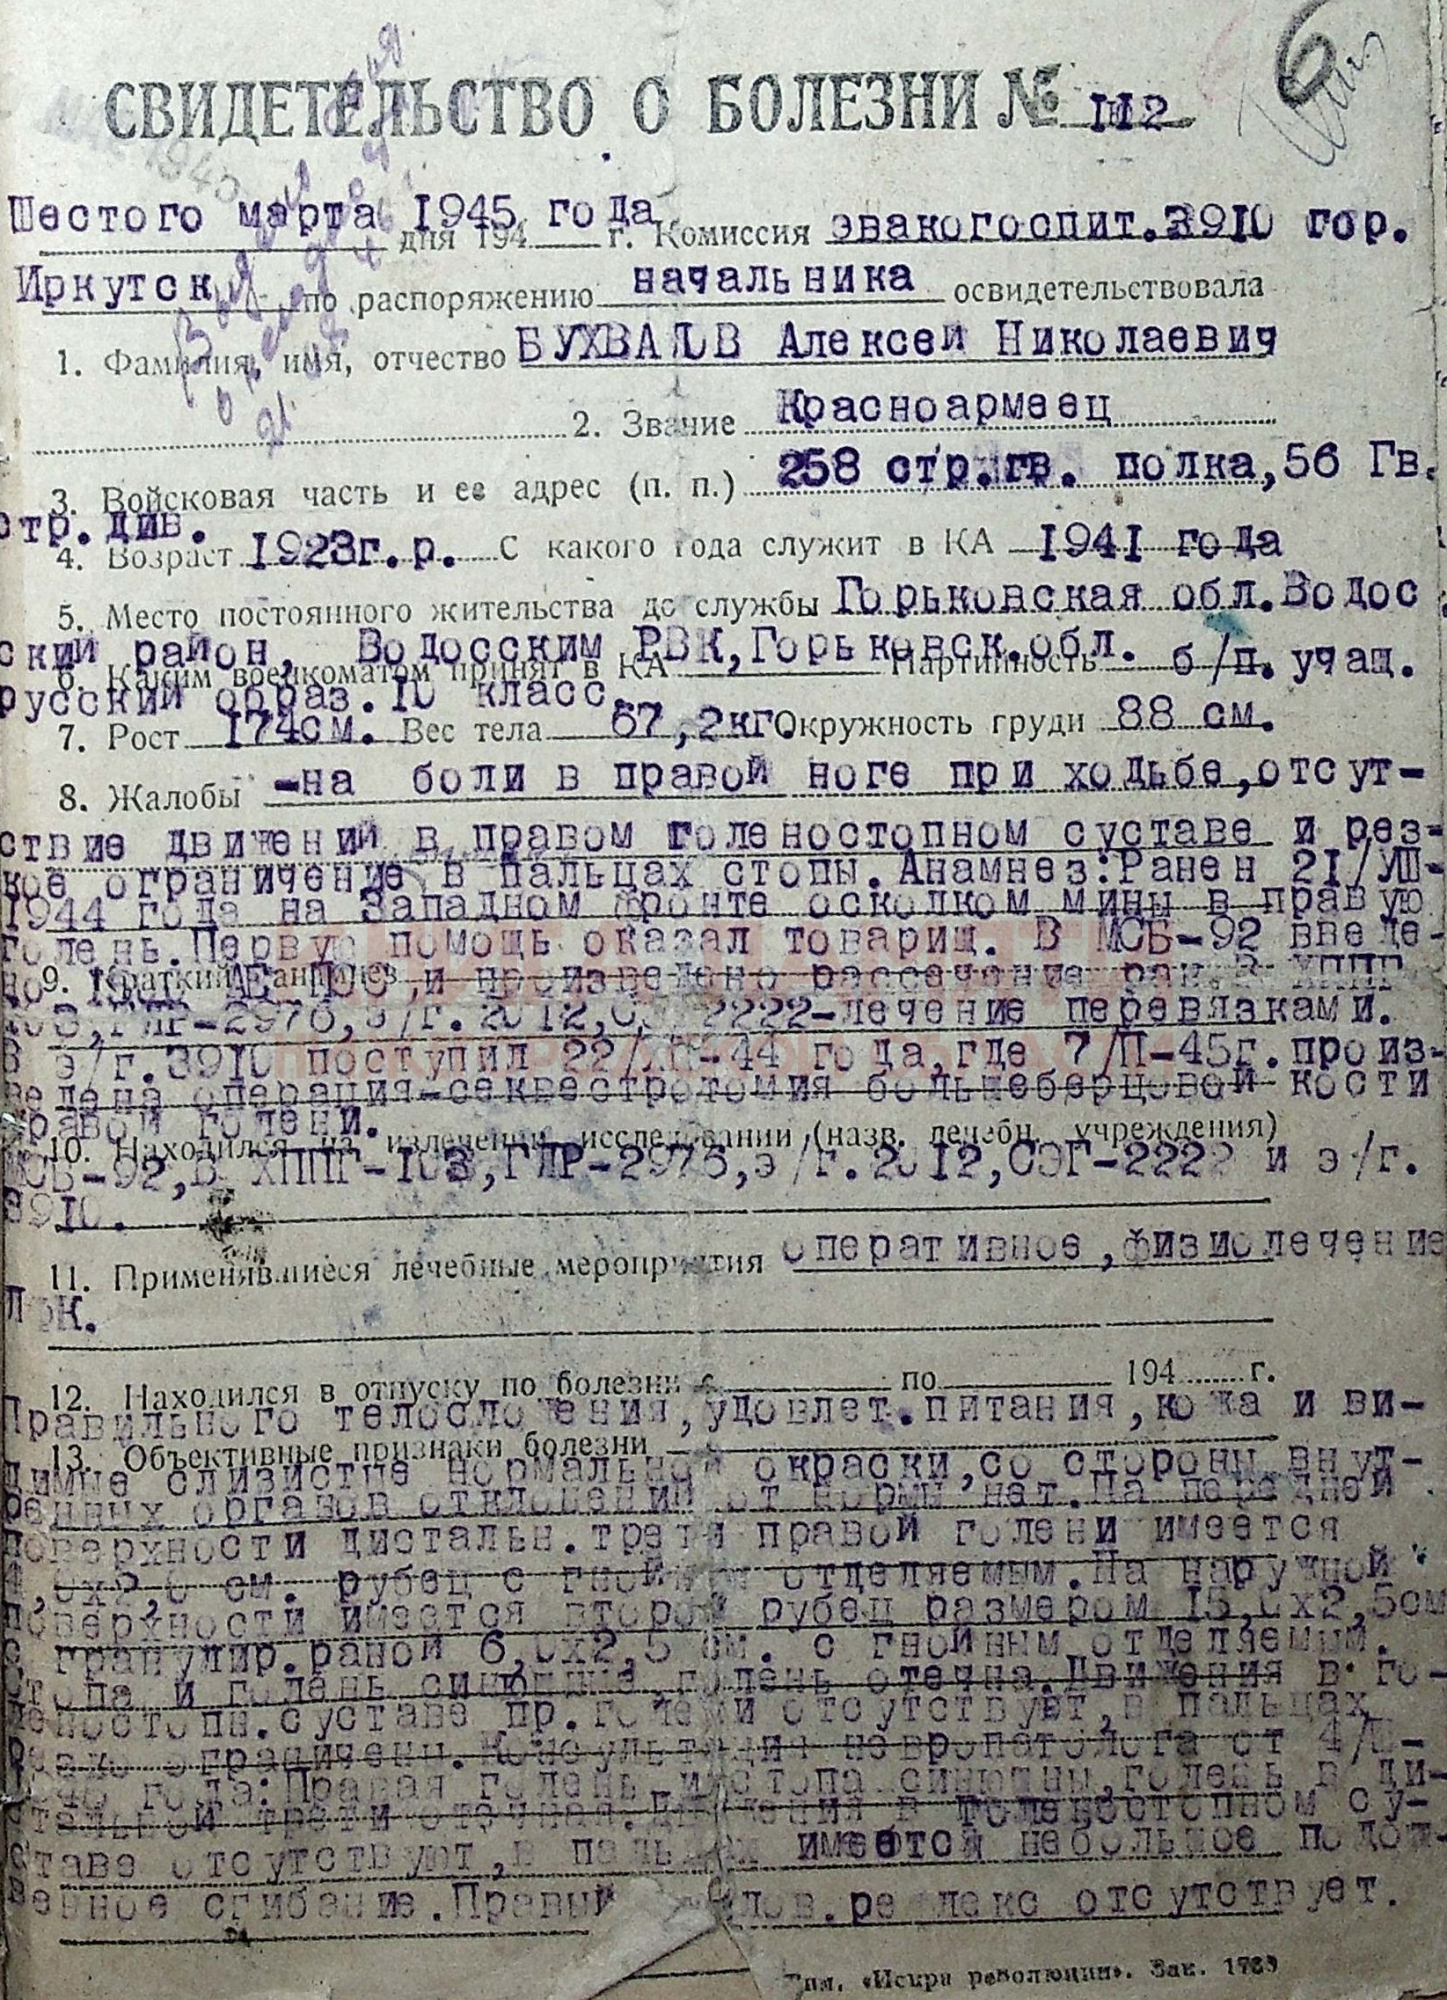 6
СВИДЕТЕЛЬСТВО О БОЛЕЗНИ № 1112
Шестого марта 1945 года дня 194 г. Комиссия эвакогоспит.3910 гор.
Иркутск по распоряжению начальника освидетельствовала
1. Фамилия, имя, отчество БУХВАЛОВ Алексей Николаевич
2. Звание Красноармеец
3. Войсковая часть и ее адрес (п. п.) 258 стр.гв. полка,56 Гв.
стр.див.
4. Возраст 1923г.р. С какого года служит в КА 1941 года
5. Место постоянного жительства до службы Горьковская обл.Водос
ский район, Водосским РВК,Горьковск.обл.
6. Каким военкоматом принят в КА Партийность б/п. учащ.
русский образ.10 класс.
7. Рост 174см. Вес тела 67,2кг. Окружность груди 88 см.
8. Жалобы -на боли в правой ноге при ходьбе,отсут-
ствие движений в правом голеностопном суставе и рез-
кое ограничение в пальцах стопы. Анамнез:Ранен 21/УШ-
1944 года на Западном фронте осколком мины в правую
голень.Первую помощь оказал товарищ. В МСБ-92 введе-
но и произведено рассечение ран.В ХППГ
9. Краткий анамнез
103,ГЛР-2976,э/г.2012,СЭГ 2222-лечение перевязками.
В э/г.3910 поступил 22/ -44 года,где 7/П-45г.произ-
ведена операция-секвестротомия большеберцовой кости
правой голени.
10. Находился на излечении, исследовании (назв. лечебн. учреждения)
МСБ-92,В ХППГ-103,ГЛР-2976,э/г.2012,СЭГ-2222 и э/г.
3910.
11. Применявшиеся лечебные мероприятия оперативное,физиолечение
ЛФК.
12. Находился в отпуску по болезни с по 194 г.
Правильного телосложения,удовлет.питания,кожа и ви-
13. Объективные признаки болезни
димые слизистые нормальной окраски,со стороны внут-
ренних органов отклонений от нормы нет.На передней
поверхности дистальн.трети правой голени имеется
см. рубец с гнойным отделяемым.На наружной
поверхности имеется второй рубец размером 15,0х2,5см
с гранулир.раной 6,0х2,5 см. с гнойным отделяемым.
Стопа и голень синюшна,голень отечна.Движения в го-
леностопн.суставе пр.голени отсутствуют,в пальцах
резко ограничены.Консультация невропатолога от 4/П-
1945 года:Правая голень и стопа синюшны,голень в ди-
стальной трети отечная.Движения в голеностопном су-
ставе отсутствуют,в пальцах имеется небольшое подош-
венное сгибание.Правый лов.рефлекс отсутствует.
Тип. «Искра революции». Зак. 1789